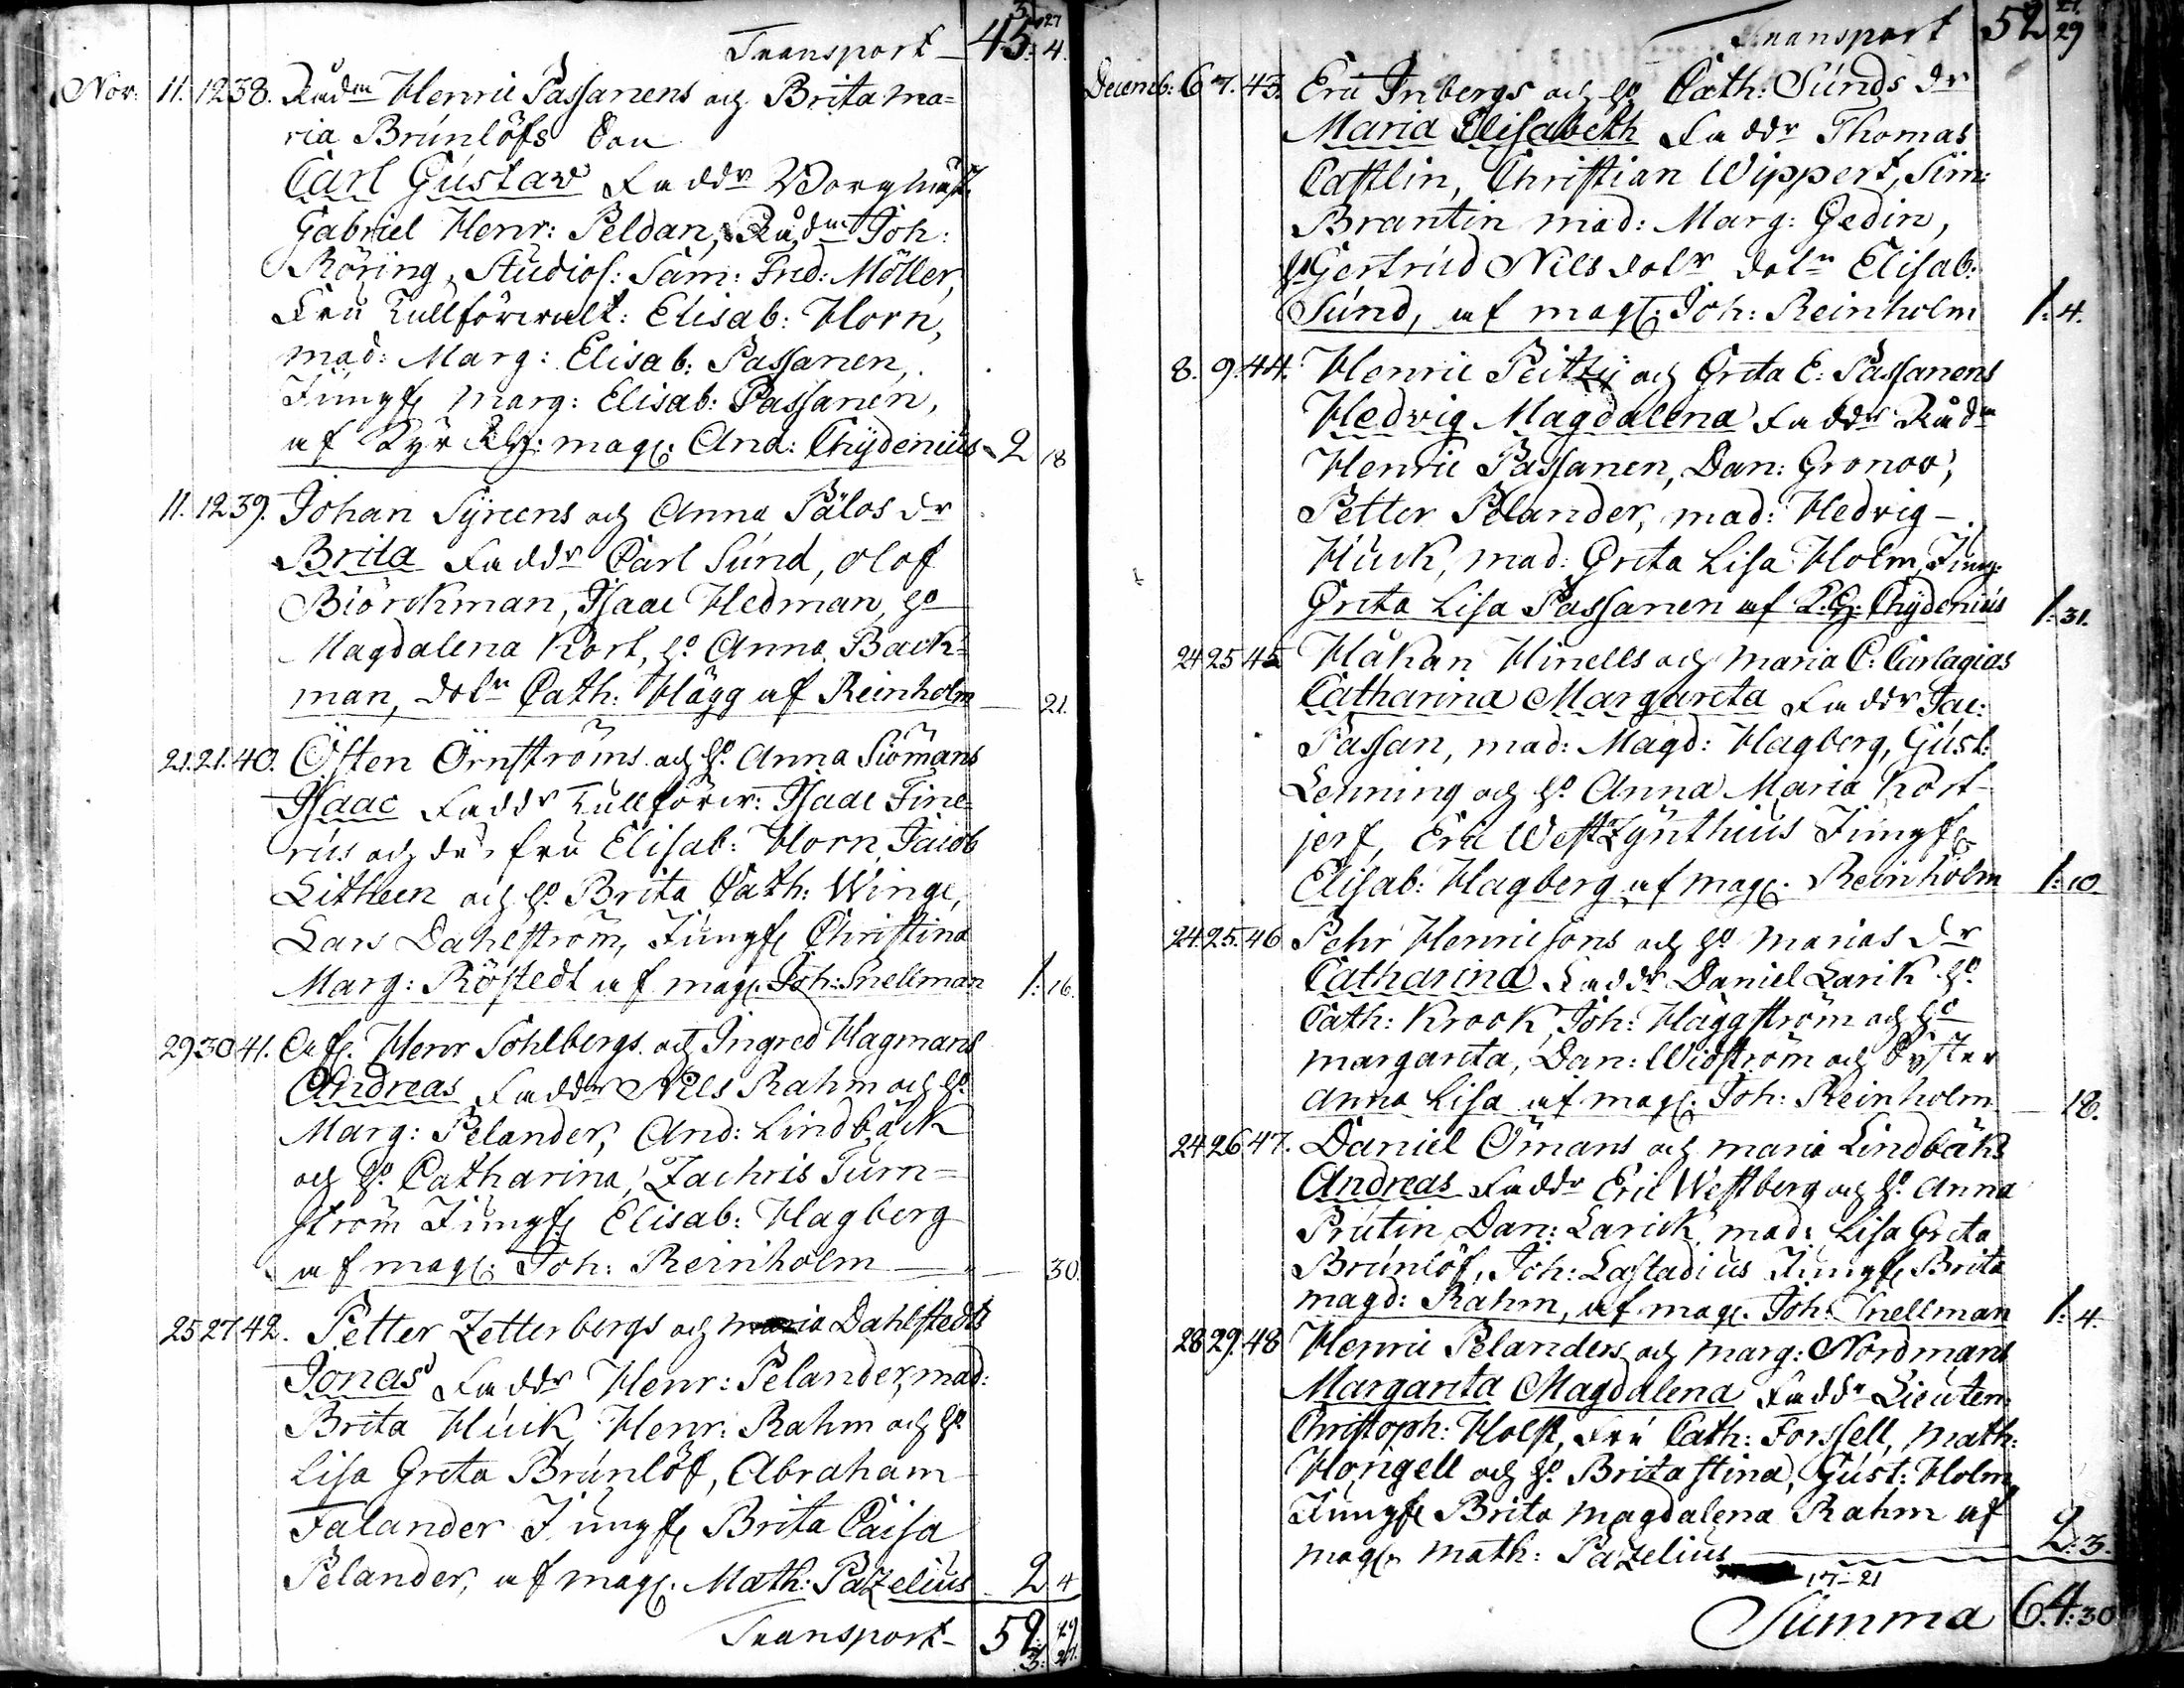 Transport 45: 4.
3 27
Nov: 11. 12 38. Rådm Henric Passanens och Brita Ma=
ria Brúnlöfs Son
Carl Gústav Faddr Borgmäst.
Gabriel Henr: Peldan, Rådm Joh:
Röring, Stúdios: Sam: Fred: Möller,
Frú Tullförvalt: Elisab: Horn,
mad: Marg: Elisab: Passanen,
Júngf. Marg: Elisab: Passanen,
af Kyrkh: mag. And: Chýdeniús 2 18
11. 12 39. Johan Syreens och Anna Pälos dr
Brita Faddr Carl Súnd, Olof
Biörckman, Isaac Hedman, ho
Magdalena Kort, ho Anna Back=
man, dotr Cath: Hägg af Reinholm 21.
21. 21. 40. Östen Örnströms och ho Anna Siömans
Isaac Faddr Tullförv: Isaac Fine=
riús och dess frú Elisab: Horn, Jacob
Litheen och ho Brita Cath: Winge,
Lars Dahlström, Júngf. Christina
Marg: Röstedt af mag. Joh: Snellman 1: 16.
29 30 41. Henr Sohlbergs och Ingred Hagmans
Andreas Faddr Nils Rahm och ho
Marg: Pelander, And: Lindbäck
och ho Catharina, Zachris Turn=
ström Júngf. Elisab: Hagberg
af mag. Joh: Reinholm 30.
25 27 42. Petter Zetterbergs och Maria Dahlstedts
Jonas Faddr Henr: Pelander, mad:
Brita Húck, Henr: Rahm och ho
Lisa Greta Brúnlöf, Abraham
Falander Júngf. Brita Caisa
Pelander, af mag. Math: Pazelius 2 4
Transport 52: 29
3: 27.
Transport 52 29
27.
Decemb: 6 7. 43. Eric Inbergs och ho Cath: Súnds dr
Maria Elisabeth Faddr Thomas
Castlin, Christian Wippert, Sim:
Brantin mad: Marg: Gedin,
ho Gertrúd Nils dotr dotr Elisab:
Súnd, af mag. Joh: Reinholm 1: 4.
8. 9. 44. Henric Peitzij och Greta E: Passanens
Hedvig Magdalena Faddr Rådm
Henric Passanen, Dan: Gronov,
Petter Pelander, mad: Hedvig
Húck, mad: Greta Lisa Holm, Júng.
Greta Lisa Passanen af Chýdeniús 1: 31.
24 25 45 Håkan Hinells och Maria C: Carlagias
Catharina Margareta Faddr Jac:
Passan, mad: Magd: Hagberg, Gúst:
Lenning och ho Anna Maria Kort-
jerf, Eric Westzynthius Júngf.
Elisab: Hagberg af mag. Reinholm 1: 10
24. 25. 46 Pehr Henricsons och ho Marias dr
Catharina Faddr Daniel Larik ho
Cath: Krook, Joh: Häggström och ho
Margareta, Dan: Widström och Syster
Anna Lisa af mag. Joh: Reinholm 18.
24 26 47. Daniel Ömans och Maria Lindbäks
Andreas Faddr Eric Westberg och ho Anna
Prútin, Dan: Larick, mad: Lisa Greta
Brúnlöf, Joh: Lastadius Júngf. Brita
Magd: Rahm, af mag. Joh: Snellman 1: 4.
28 29. 48 Henric Pelanders och Marg: Nordmans
Margareta Magdalena Faddr Lieuten:
Christoph: Holst, Frú Cath: Forssell, Math:
Hongell och ho Brita Stina, Gúst: Holm,
Júngf. Brita Magdalena Rahm af
mag. Math: Pazelius 2: 3.
17-21
Summa 64: 30